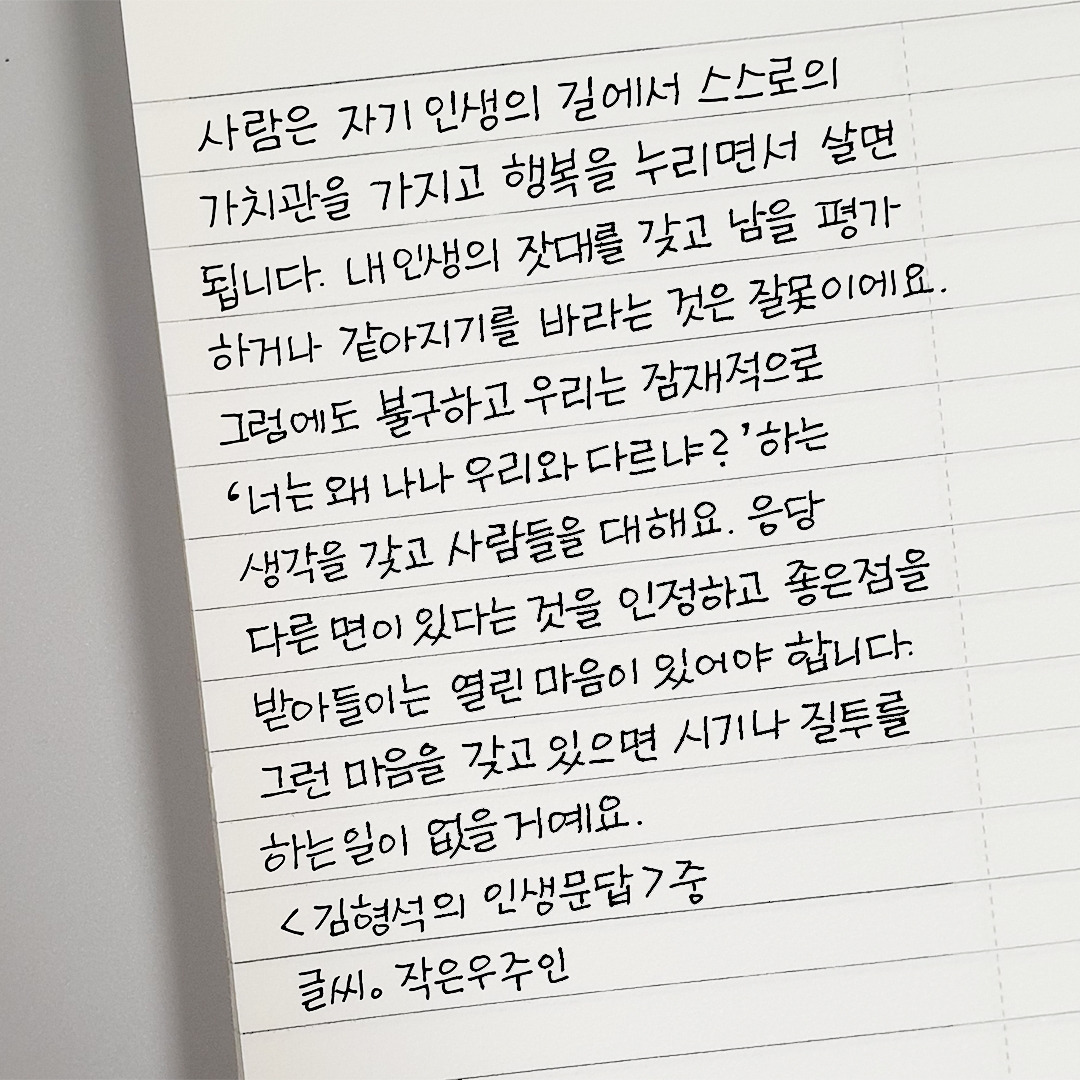 사람은 자기 인생의 길에서 스스로의
가치관을 가지고 행복을 누리면서 살면
됩니다. 내 인생의 잣대를 갖고 남을 평가
하거나 같아지기를 바라는 것은 잘못이에요.
그럼에도 불구하고 우리는 잠재적으로
‘너는 왜 나나 우리와 다르냐?’하는
생각을 갖고 사람들을 대해요. 응당
다른 면이 있다는 것을 인정하고 좋은점을
받아들이는 열린 마음이 있어야 합니다.
그런 마음을 갖고 있으면 시기나 질투를
하는일이 없을거예요.
<김형석의 인생문답>중
글씨。작은우주인